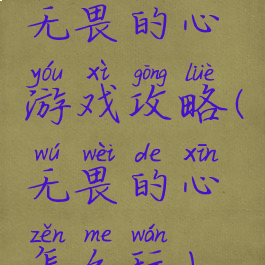 无畏的心
yóu xì gōng lüè
游戏攻略(
wú wèi de xīn
无畏的心
zěn me wán
怎么玩)